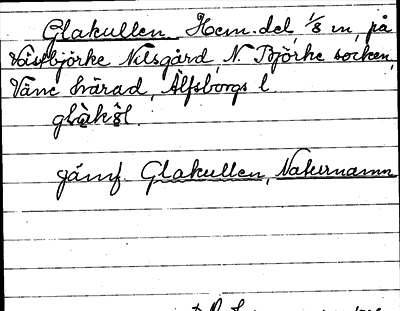 Glakullen Hem.del, 1/8 m, på
Västbjörke Nilsgård, N. Björke socken,
Väne härad, Älfsborgs l
jämf. Glakullen, Naturnamn